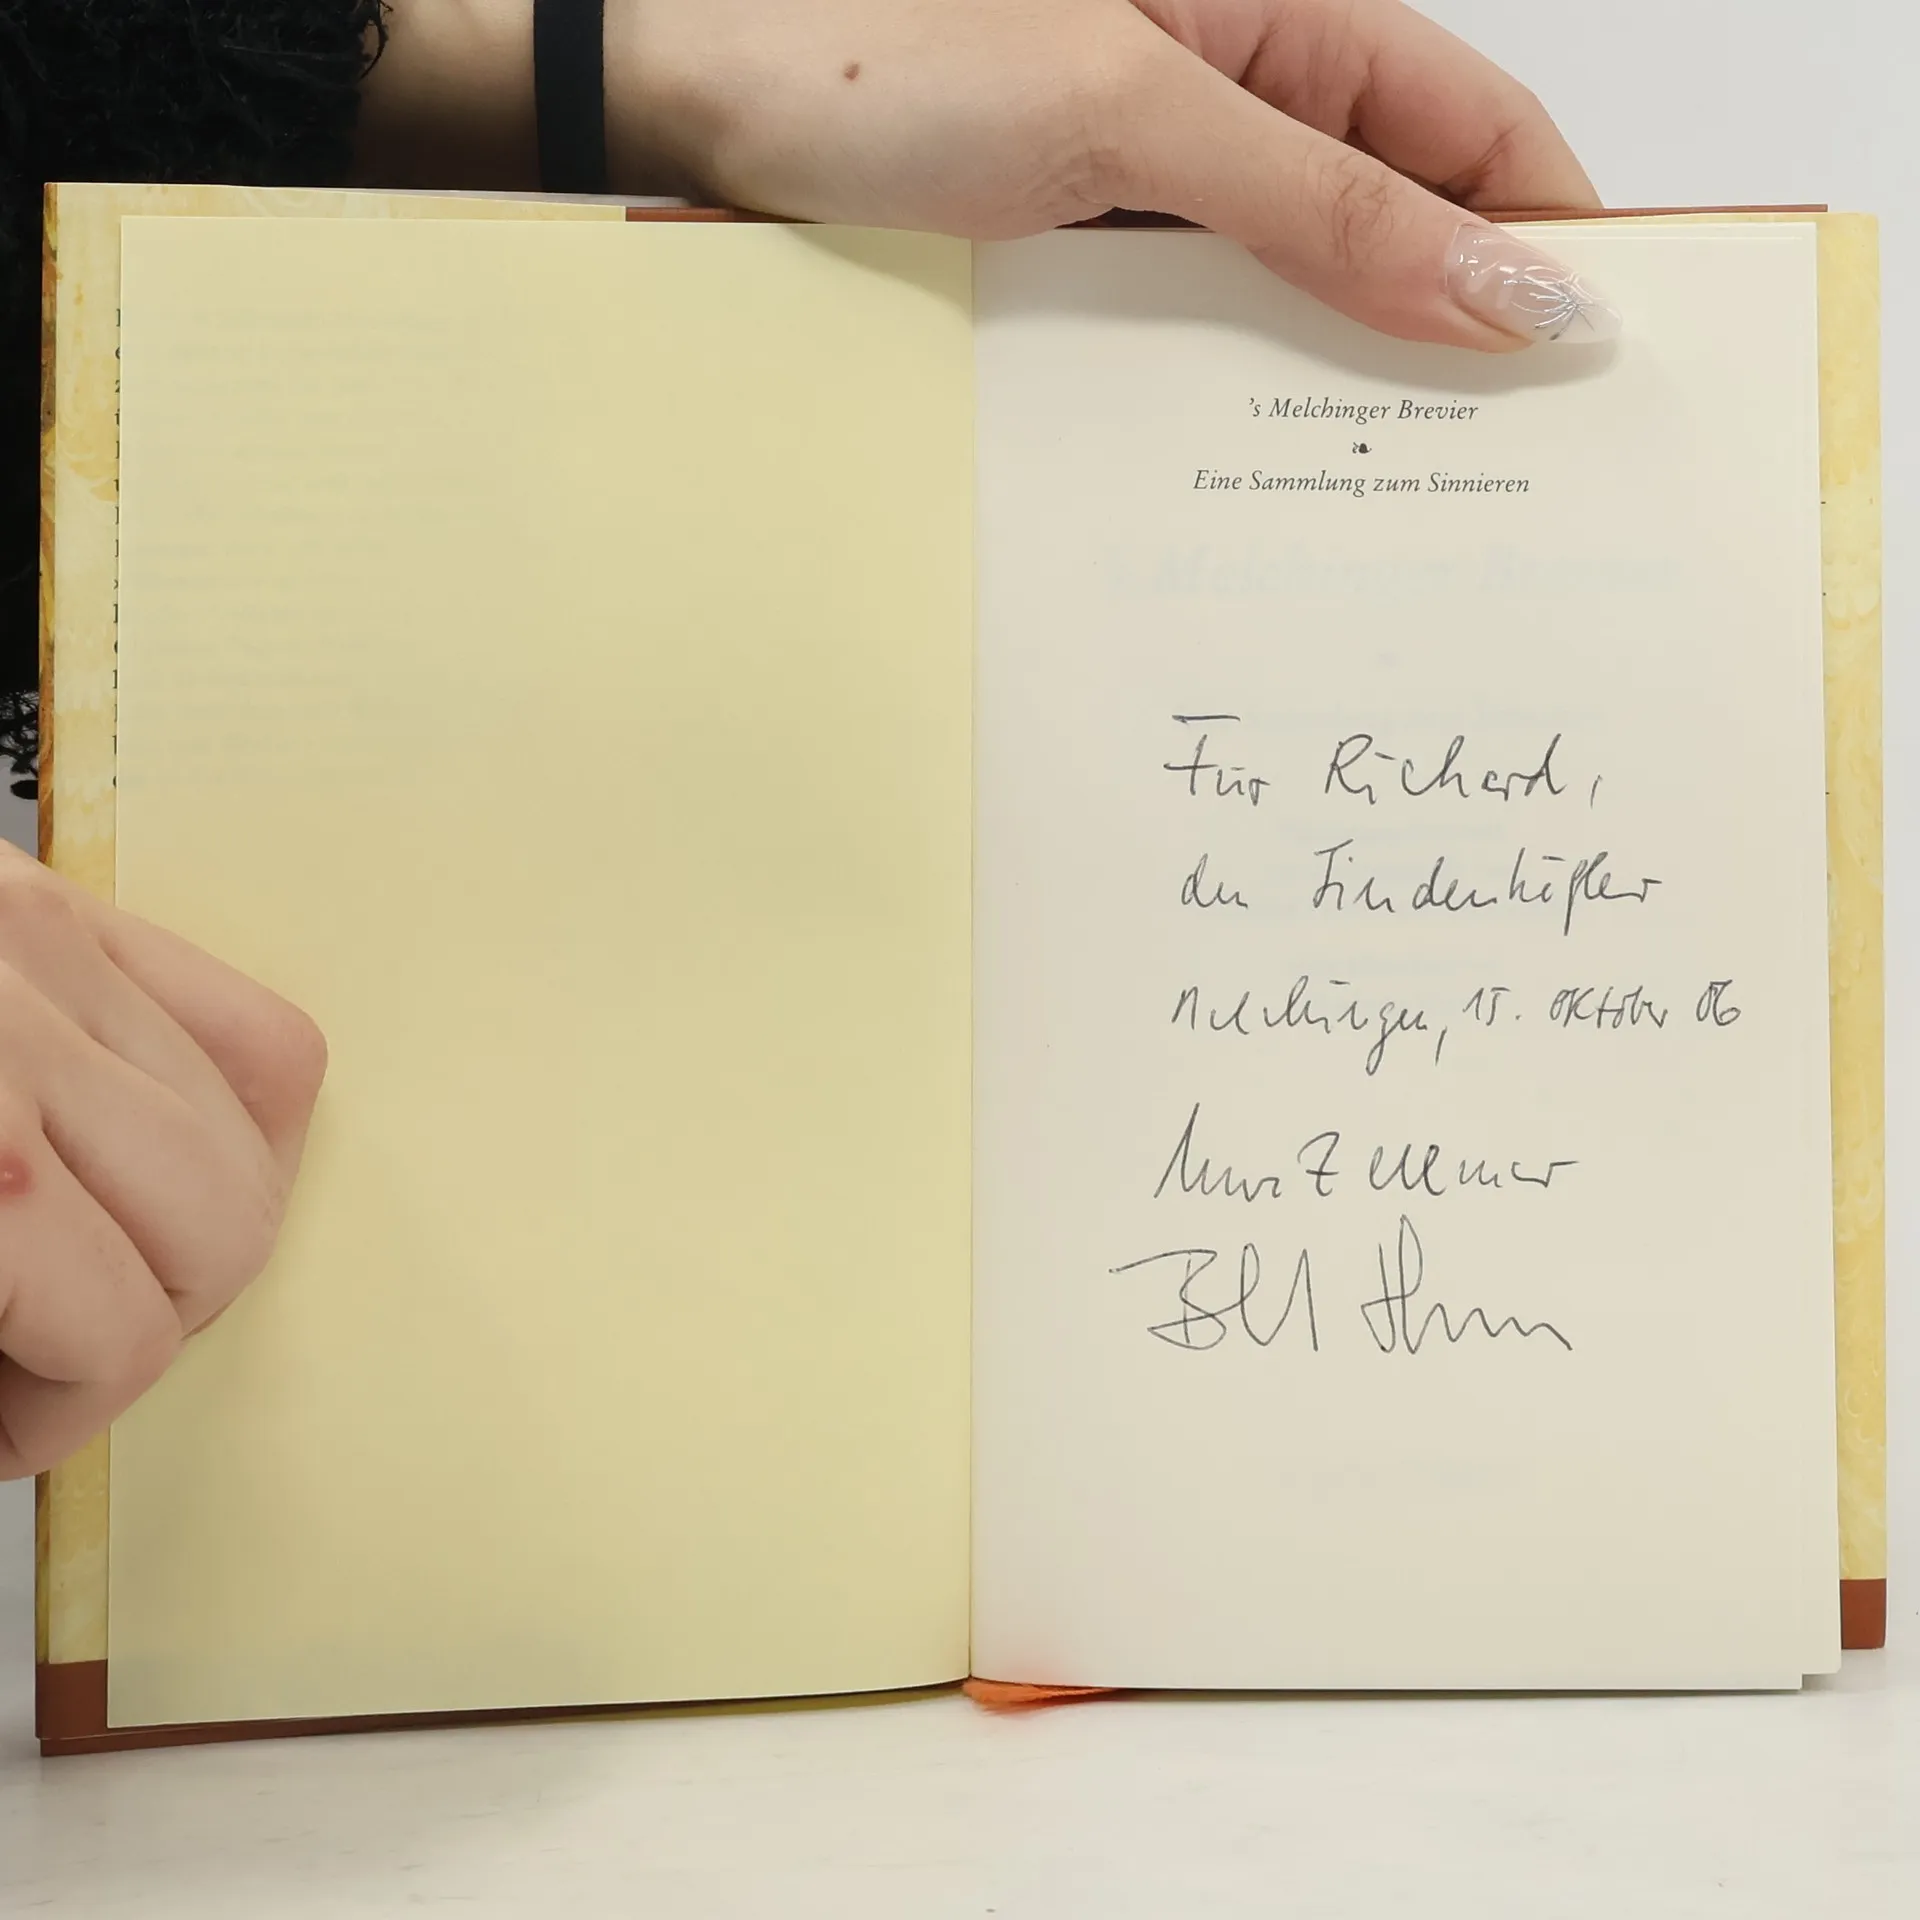 's Melchinger Brevier
Eine Sammlung zum Sinnieren
Für Richard,
den Lindenhöfler
Melchingen, 15. Oktober 06
Uwe Zellmer